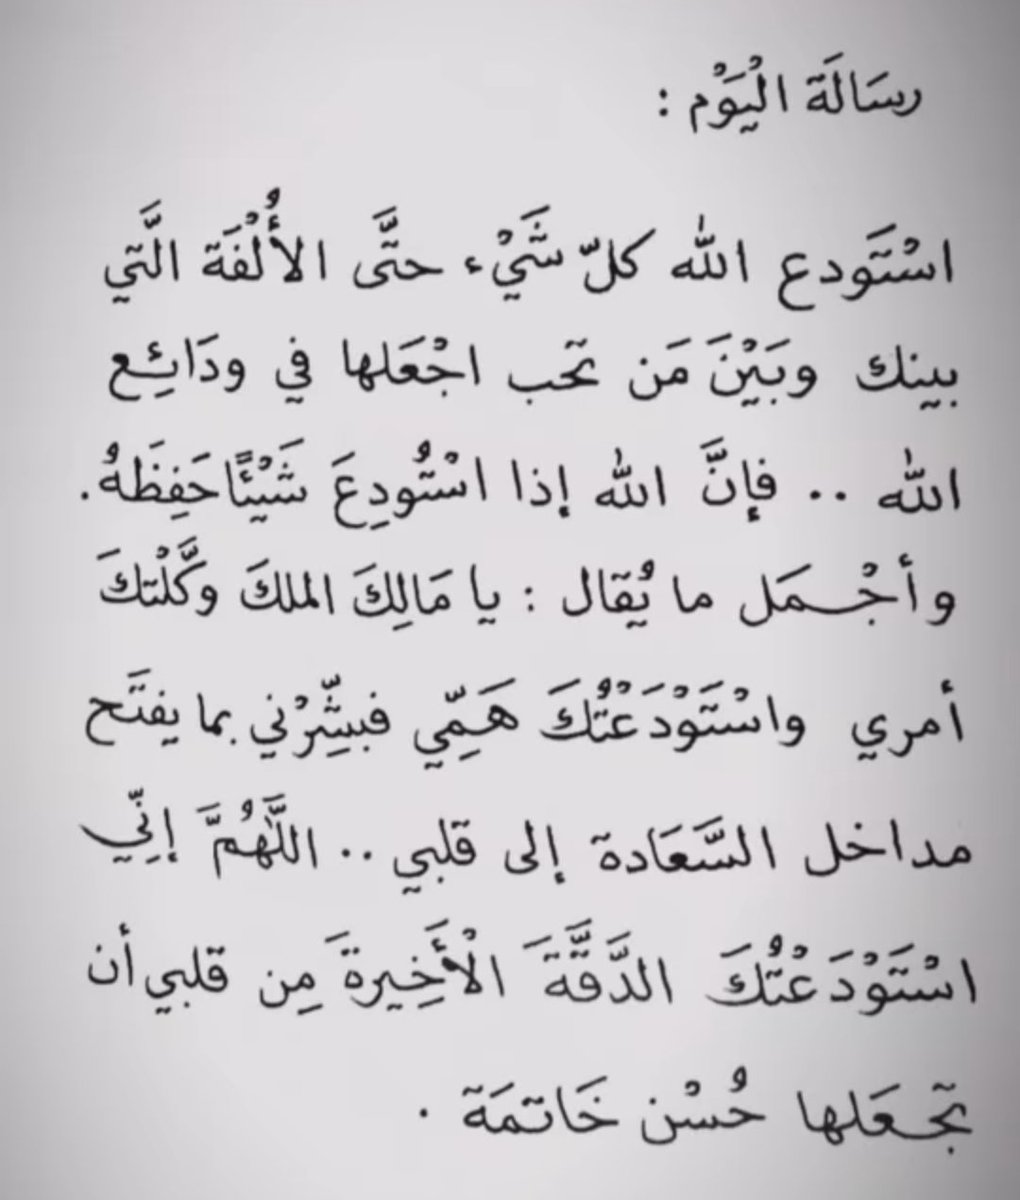 رسَالَة الْيَوْم :
اسْتَودع الله كلّ شَيْء حتَّى الأُلْفَة الَّتي
بينك وبَيْنَ مَن تحب اجْعَلها في ودَائِع
الله .. فإنَّ الله إذا اسْتُودِعَ شَيْئًا حَفِظَهُ .
وأجْمَل ما يُقال : يا مَالِكَ الملكَ وكَّلْتكَ
أمري واسْتَوْدَعْتُكَ هَمِّي فبشِّرْني بما يفتَح
مداخل السَّعَادة إلى قلبي .. اللَّهُمَّ إنِّي
اسْتَوْدَعْتُكَ الدَّقَّةَ الْأَخِيرةَ مِن قلبي أن
تجعَلها حُسْن خَاتمَة .